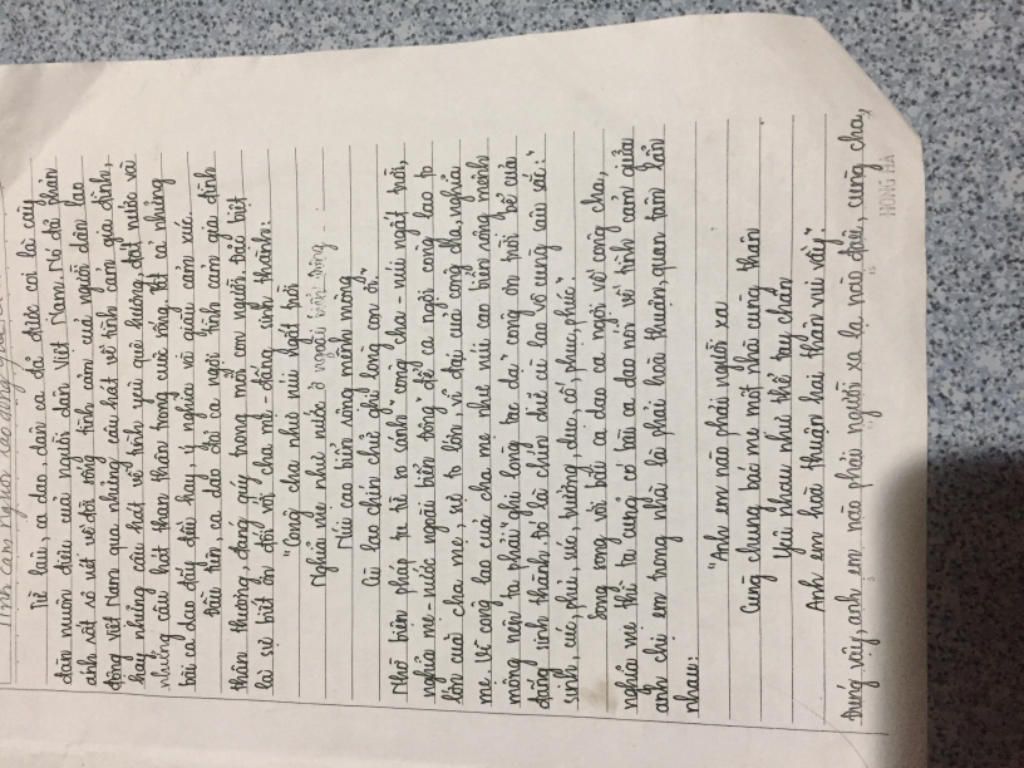 Từ lâu, ca dao, dân ca đã được coi là cây
đàn muôn điệu của người dân Việt Nam. Nó đã phản
ánh rất rõ nét về đời sống tình cảm của người dân lao
động Việt Nam qua những câu hát về tình cảm gia đình,
hay những câu hát về tình yêu quê hương, đất nước và
những câu hát than thân trong cuộc sống. Tất cả những
bài ca dao đấy đều hay, ý nghĩa và giàu cảm xúc.
Đầu tiên, ca dao đã ca ngợi tình cảm gia đình
thân thương, đáng quý trong mỗi con người. Đặc biệt
là sự biết ơn đối với cha mẹ - đấng sinh thành:
"Công cha như núi ngất trời
Nghĩa mẹ như nước ở ngoài biển Đông
Núi cao biển rộng mênh mông
Cù lao chín chữ ghi lòng con ơi."
Nhờ biện pháp tu từ so sánh "công cha - núi ngất trời,
nghĩa mẹ - nước ngoài biển Đông" để ca ngợi công lao to
lớn của cha mẹ, sự to lớn, vĩ đại của công cha, nghĩa
mẹ. Vì công lao của cha mẹ như núi cao biển rộng mênh
mông nên ta phải "ghi lòng tạc dạ" công ơn trời bể của
đấng sinh thành đó là chín chữ cù lao vô cùng sâu sắc: "
sinh, cúc, phủ, súc, trưởng, dục, cố, phục, phúc."
Song song với bài ca dao ca ngợi về công cha,
nghĩa mẹ thì ta cũng có bài ca dao nói về tình cảm giữa
anh chị em trong nhà là phải hoà thuận, quan tâm lẫn
nhau:
"Anh em nào phải người xa
Cùng chung bác mẹ một nhà cùng thân
Yêu nhau như thể tay chân
Anh em hoà thuận hai thân vui vầy".
Đúng vậy, anh em nào phải người xa lạ nào đâu, cùng cha,
HONG HA